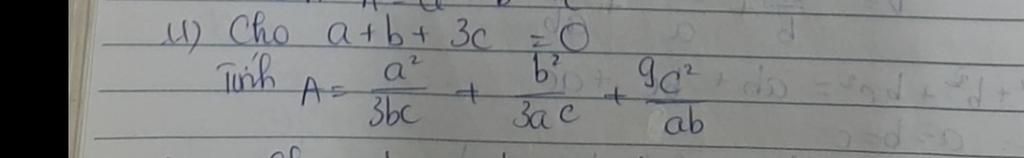 u) Cho a + b + 3c = 0
Tính A = a²/3bc + b²/3ac + 9c²/ab